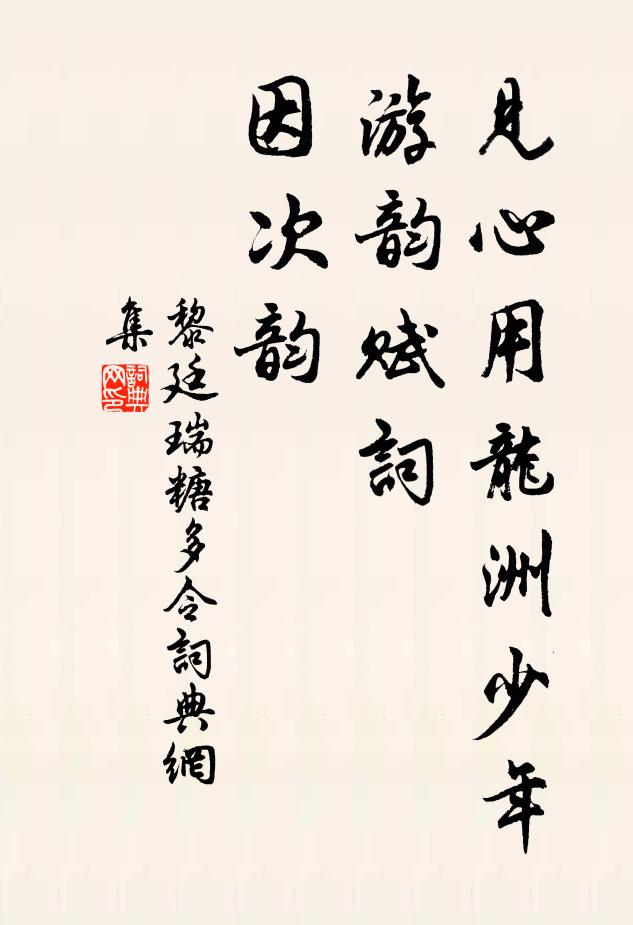 見心用龍洲少年
游韵賦詞
因次韵
黎廷瑞糖多令詞典網
集
詞典
网印